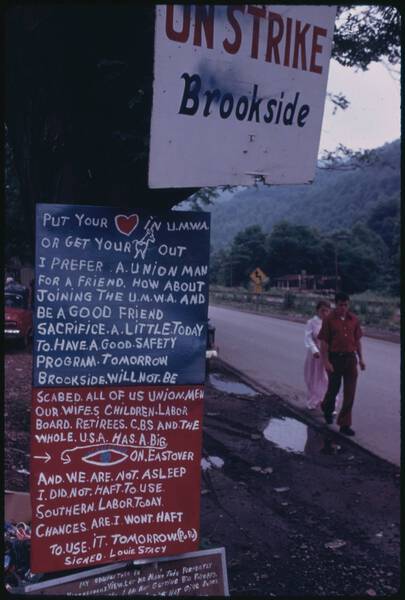 ON STRIKE
Brookside
PUT YOUR IN U.M.W.A.
OR GET YOUR OUT
I PREFER. A. UNION MAN
FOR A FRIEND. HOW ABOUT
JOINING THE U.M.W.A. AND
BE A GOOD FRIEND
SACRIFICE. A. LITTLE. TODAY
TO. HAVE. A. GOOD. SAFETY
PROGRAM. TOMORROW
BROOKSIDE. WILL. NOT. BE
SCABED. ALL OF US UNION. MEN
OUR WIFES, CHILDREN. LABOR
BOARD. RETIREES. CBS AND THE
WHOLE. U.S.A. HAS. A. BIG.
ON. EASTOVER
AND. WE. ARE. NOT. ASLEEP
I. DID. NOT. HAFT. TO. USE.
SOUTHERN. LABOR. TODAY.
CHANCES. ARE. I. WONT. HAFT
TO. USE. IT. TOMORROW.
SIGNED. LOUIE STACY